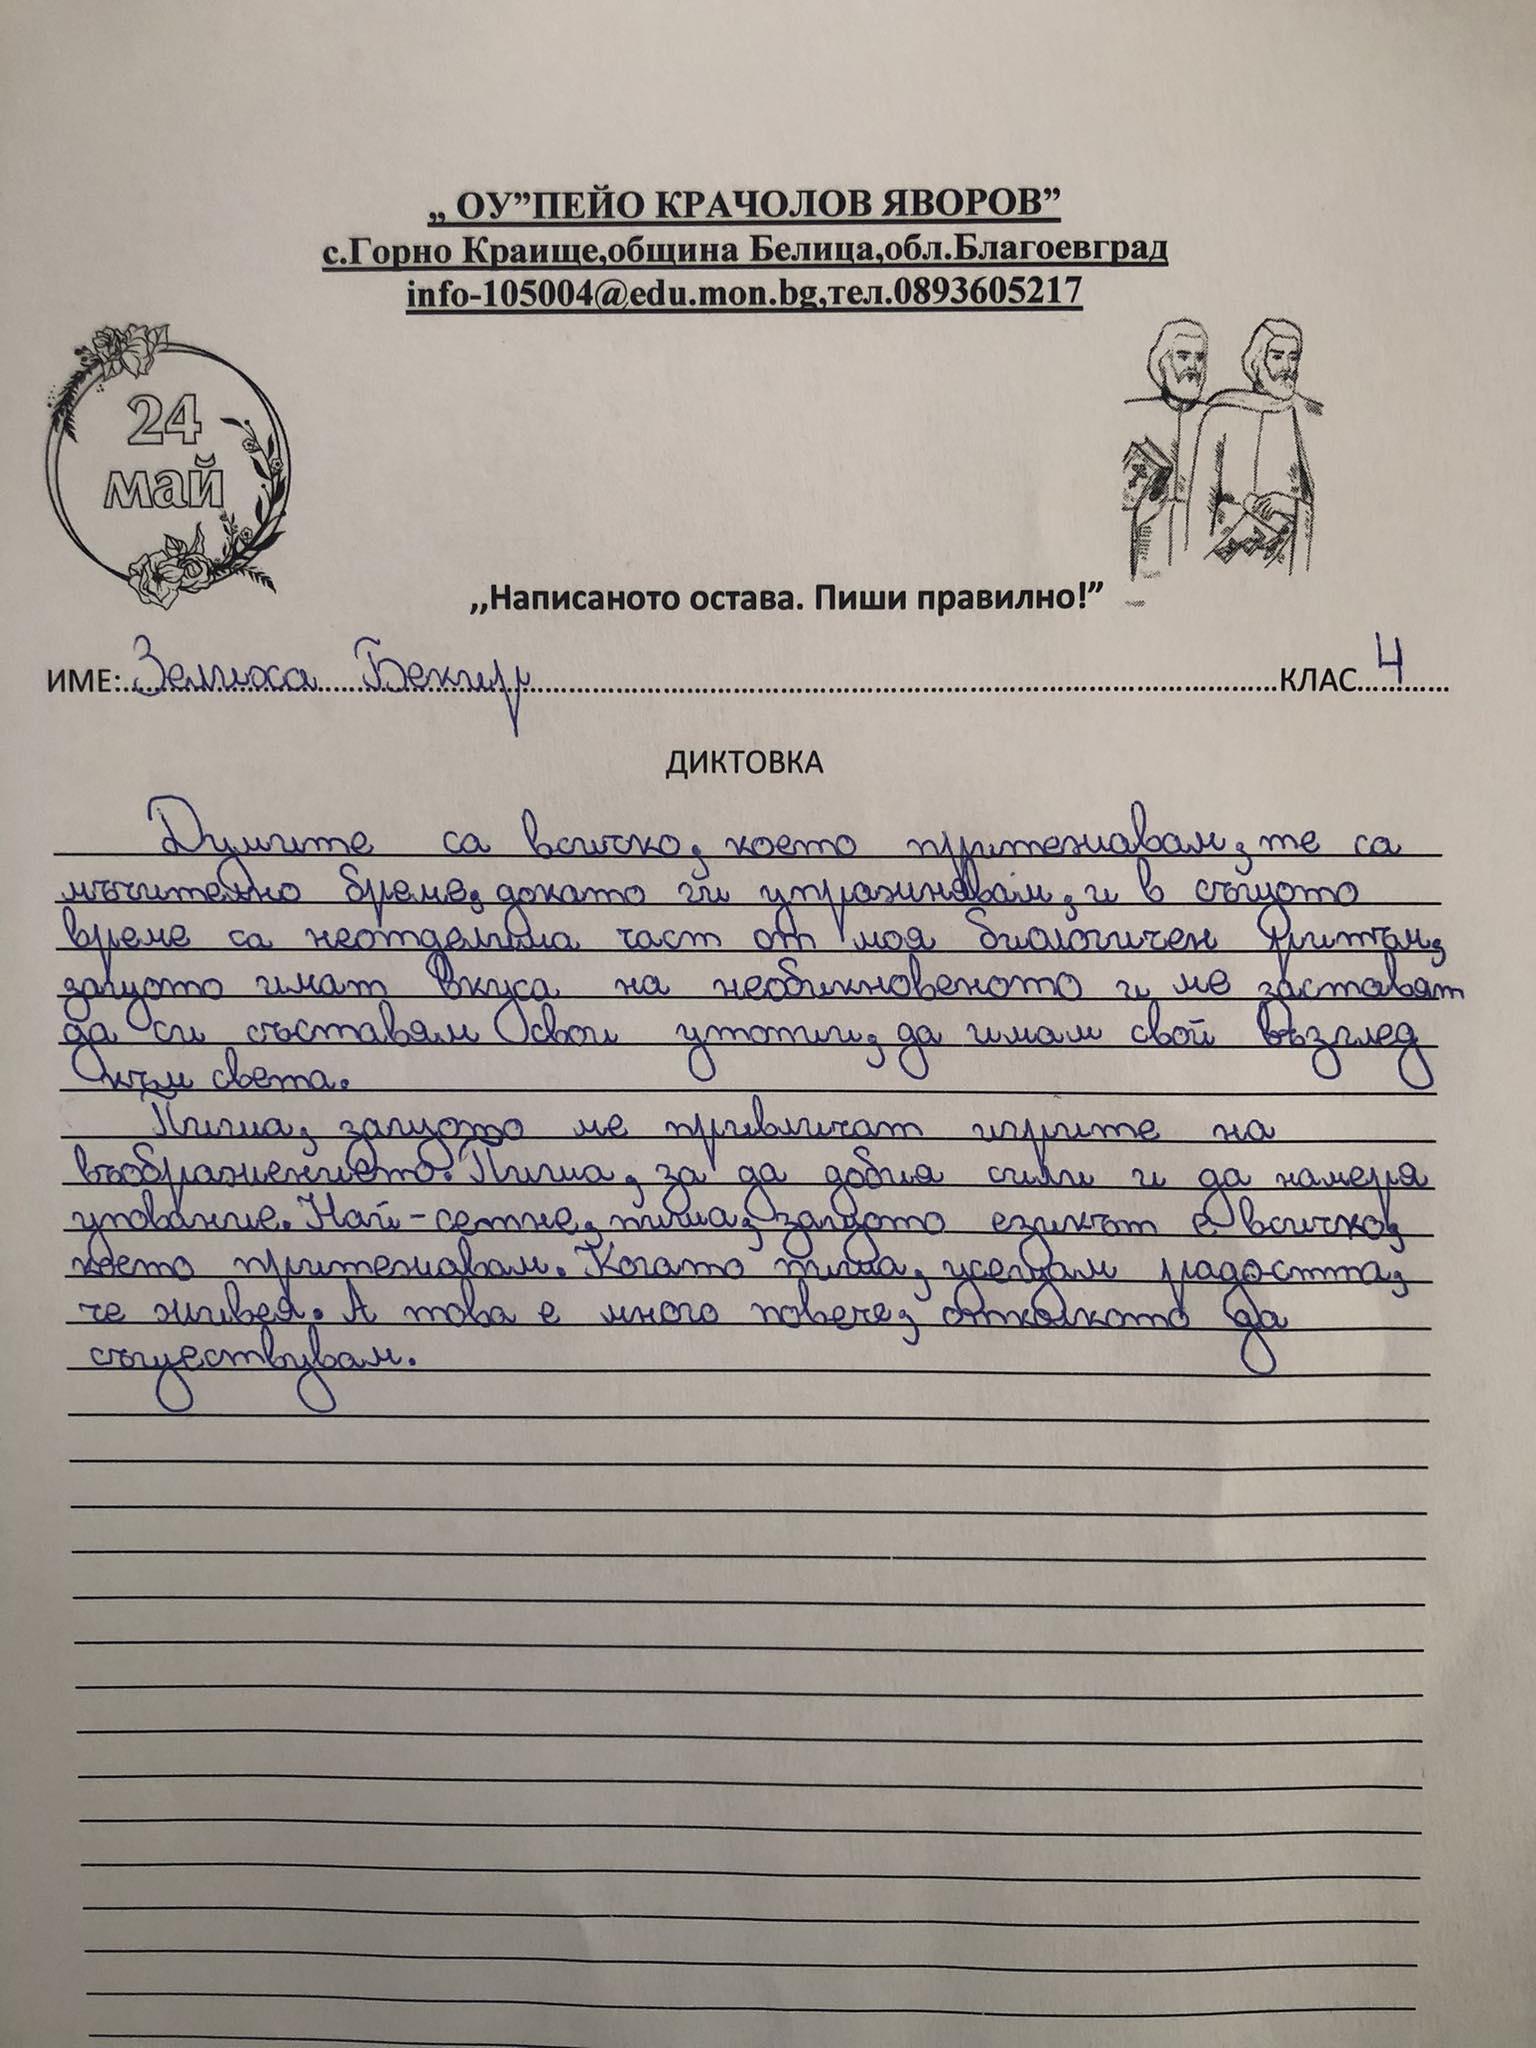 „ ОУ”ПЕЙО КРАЧОЛОВ ЯВОРОВ”
с.Горно Краище,община Белица,обл.Благоевград
info-105004@edu.mon.bg,тел.0893605217
24
май
,,Написаното остава. Пиши правилно!”
ИМЕ: Зелиха Бекир КЛАС 4
ДИКТОВКА
Думите са всичко, което притежавам, те са
мъчително бреме, докато ги упражнявам, и в същото
време са неотделима част от моя биологичен ритъм,
защото имат вкуса на необикновеното и ме заставят
да си съставям свои утопии, да имам свой възглед
към света.
Пиша, защото ме привличат игрите на
въображението. Пиша, за да добия сили и да намеря
упование. Най-сетне, пиша, защото езикът е всичко,
което притежавам. Когато пиша, усещам радостта,
че живея. А това е много повече, отколкото да
съществувам.